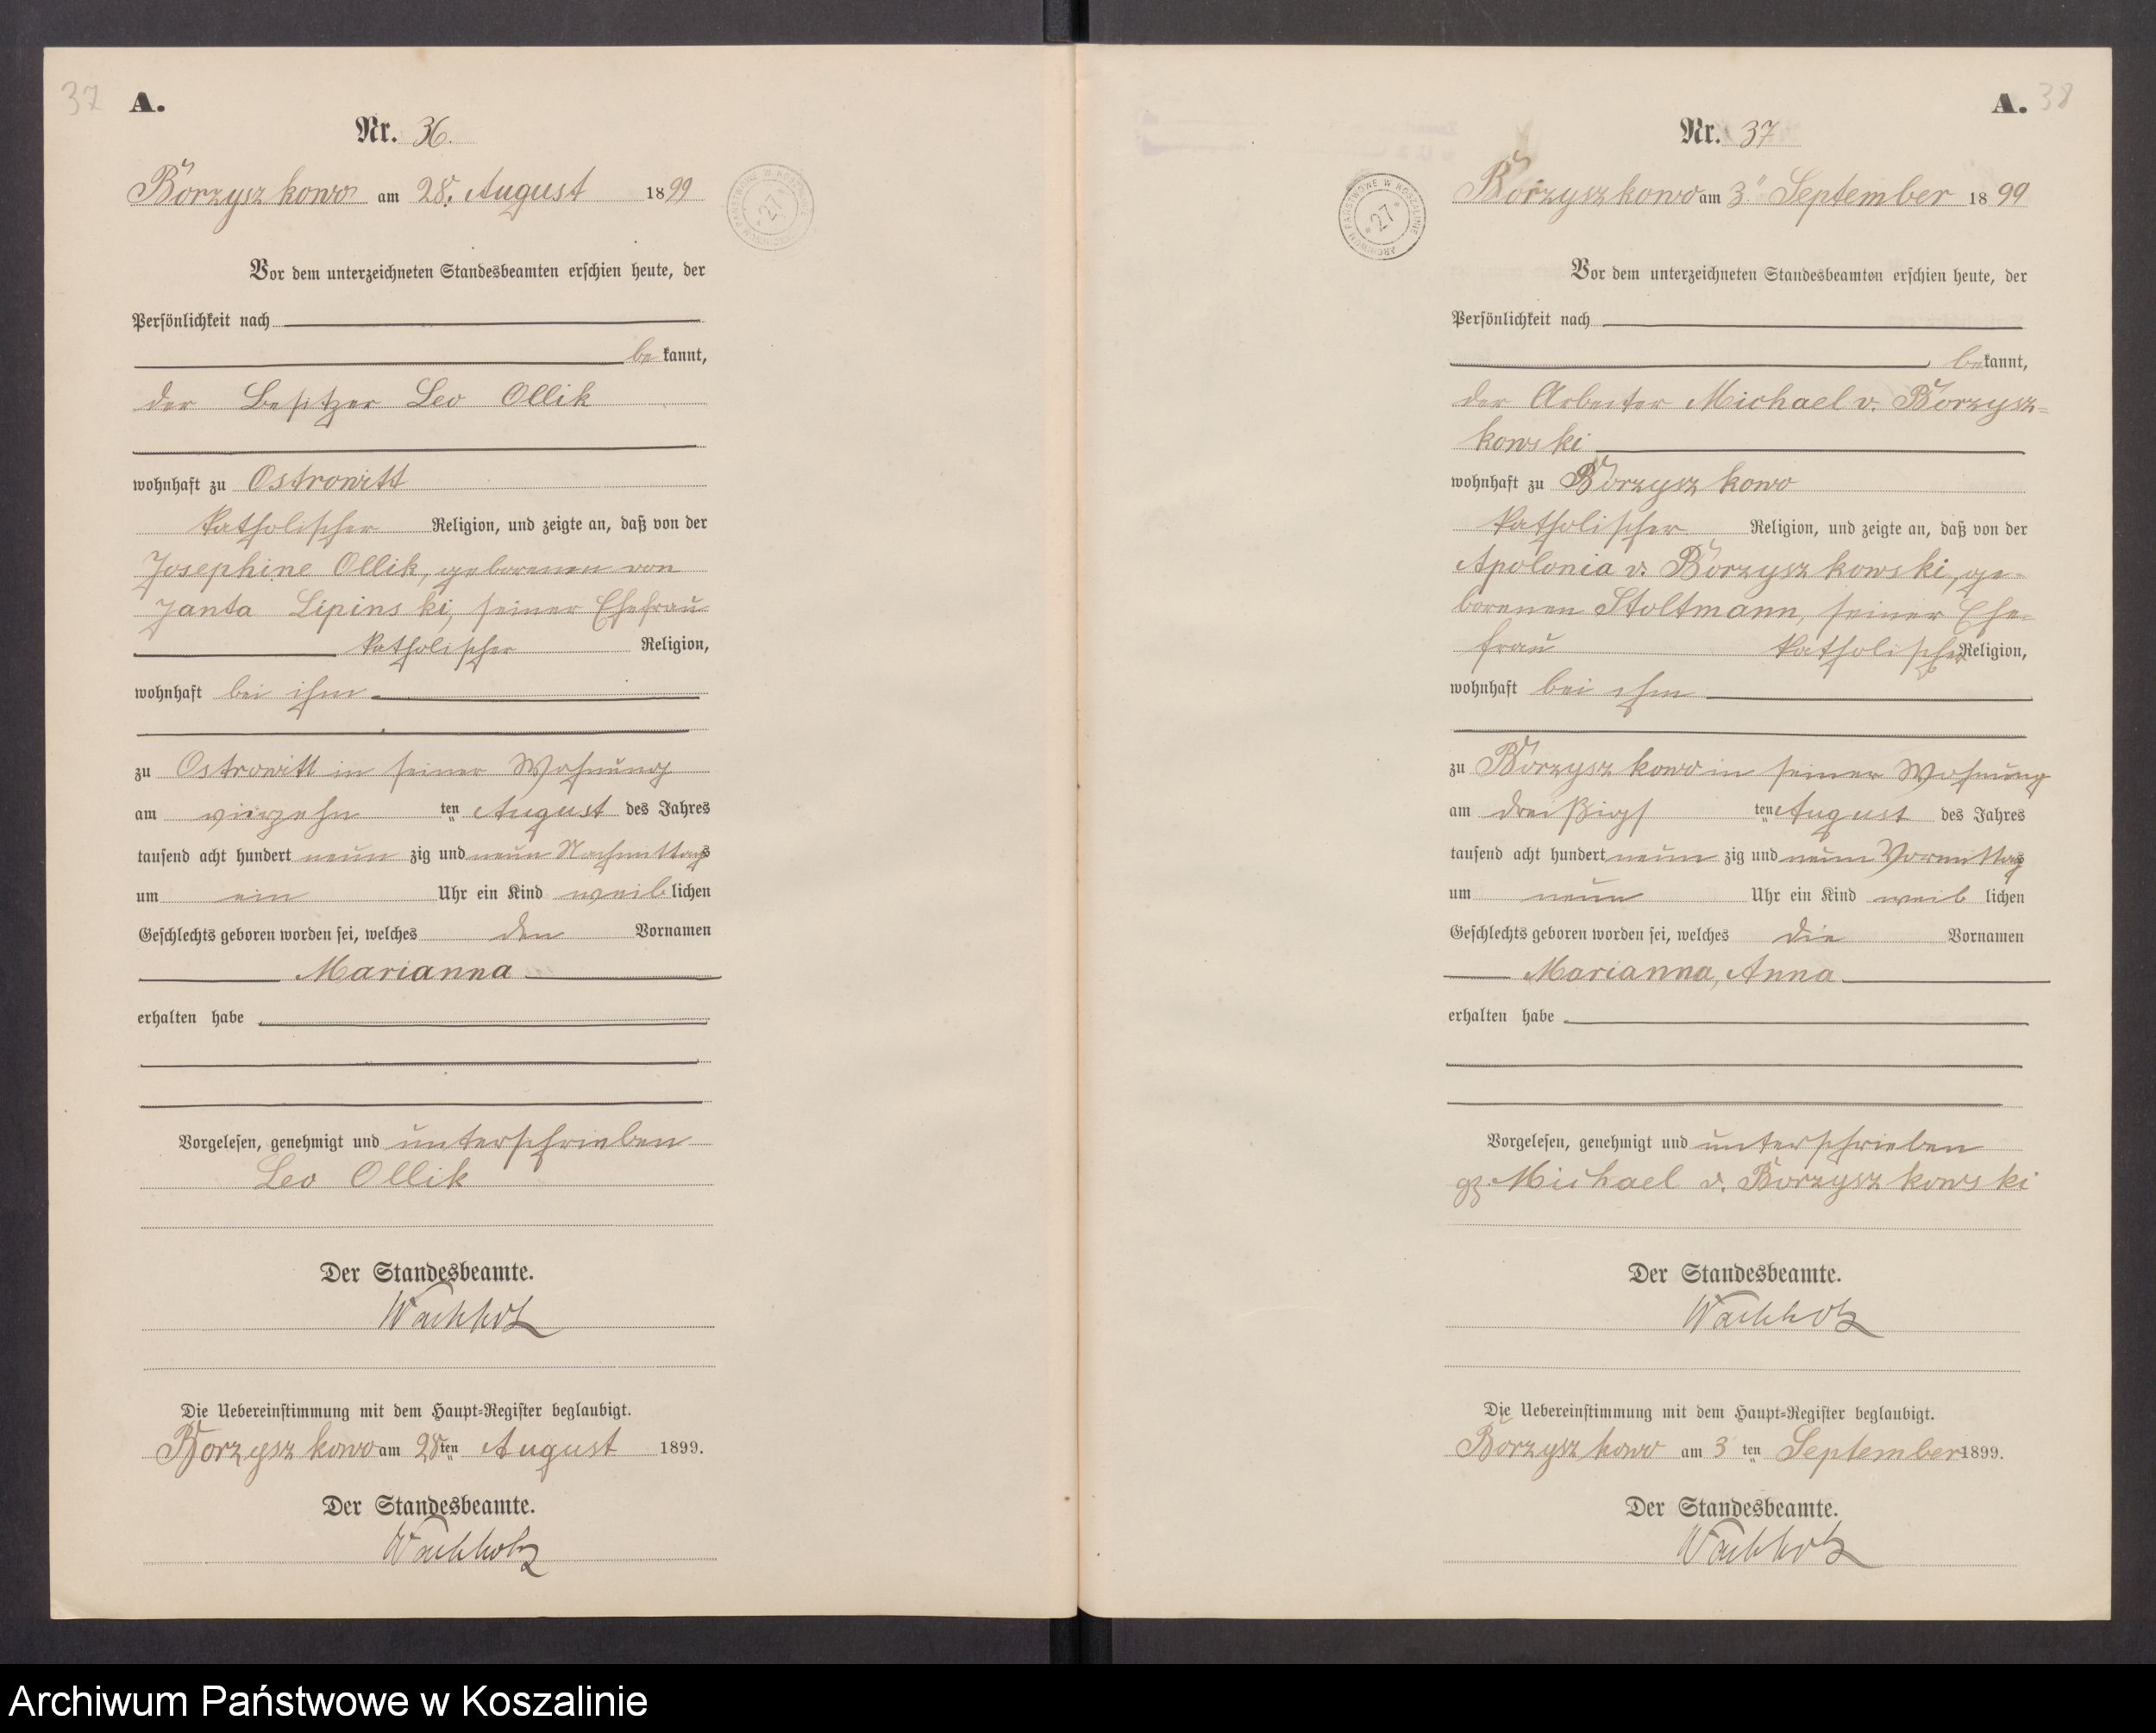 37
A.
Nr. 36.
Borzyszkowo am 28. August 1899
ARCHIWUM PAŃSTWOWE W KOSZALINIE
* 27 *
Vor dem unterzeichneten Standesbeamten erschien heute, der
Persönlichkeit nach
be kannt,
der Besitzer Leo Ollik
wohnhaft zu Ostrowitt
katholischer Religion, und zeigte an, daß von der
Josephine Ollik, geborenen von
Janta Lipinski, seiner Ehefrau
katholischer Religion,
wohnhaft bei ihm
zu Ostrowitt in seiner Wohnung
am vierzehn ten August des Jahres
tausend acht hundert neun zig und neun Nachmittags
um ein Uhr ein Kind weib lichen
Geschlechts geboren worden sei, welches den Vornamen
Marianna
erhalten habe
Vorgelesen, genehmigt und unterschrieben
Leo Ollik
Der Standesbeamte.
Wachholz
Die Uebereinstimmung mit dem Haupt-Register beglaubigt.
Borzyszkowo am 28ten August 1899.
Der Standesbeamte.
Wachholz
38
A.
Nr. 37
Borzyszkowo am 3ᵗᵉⁿ September 1899
ARCHIWUM PAŃSTWOWE W KOSZALINIE
* 27 *
Vor dem unterzeichneten Standesbeamten erschien heute, der
Persönlichkeit nach
be kannt,
der Arbeiter Michael v. Borzysz=
kowski
wohnhaft zu Borzyszkowo
katholischer Religion, und zeigte an, daß von der
Apolonia v. Borzyszkowski, ge-
borenen Stoltmann, seiner Ehe-
frau katholischer Religion,
wohnhaft bei ihm
zu Borzyszkowo in seiner Wohnung
am dreißigst ten August des Jahres
tausend acht hundert neun zig und neun Vormittags
um neun Uhr ein Kind weib lichen
Geschlechts geboren worden sei, welches die Vornamen
Marianna, Anna
erhalten habe
Vorgelesen, genehmigt und unterschrieben
gz. Michael v. Borzyszkowski
Der Standesbeamte.
Wachholz
Die Uebereinstimmung mit dem Haupt-Register beglaubigt.
Borzyszkowo am 3 ten September 1899.
Der Standesbeamte.
Wachholz
Archiwum Państwowe w Koszalinie